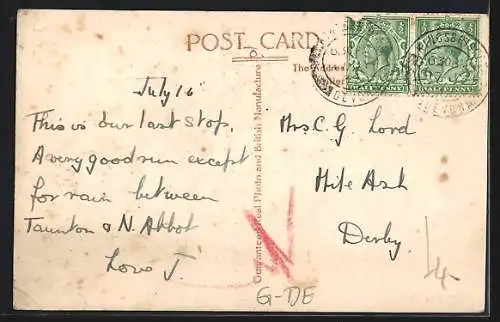 POST CARD
The Address
July 16
This is our last stop.
A very good run except
for rain between
Taunton & N. Abbot
Love J.
Guaranteed Real Photo and British Manufacture
Mrs C. G. Lord
Mite Ash
Derby.
HALFPENNY
HALFPENNY
DEVON
DEVON
G-DE
4-